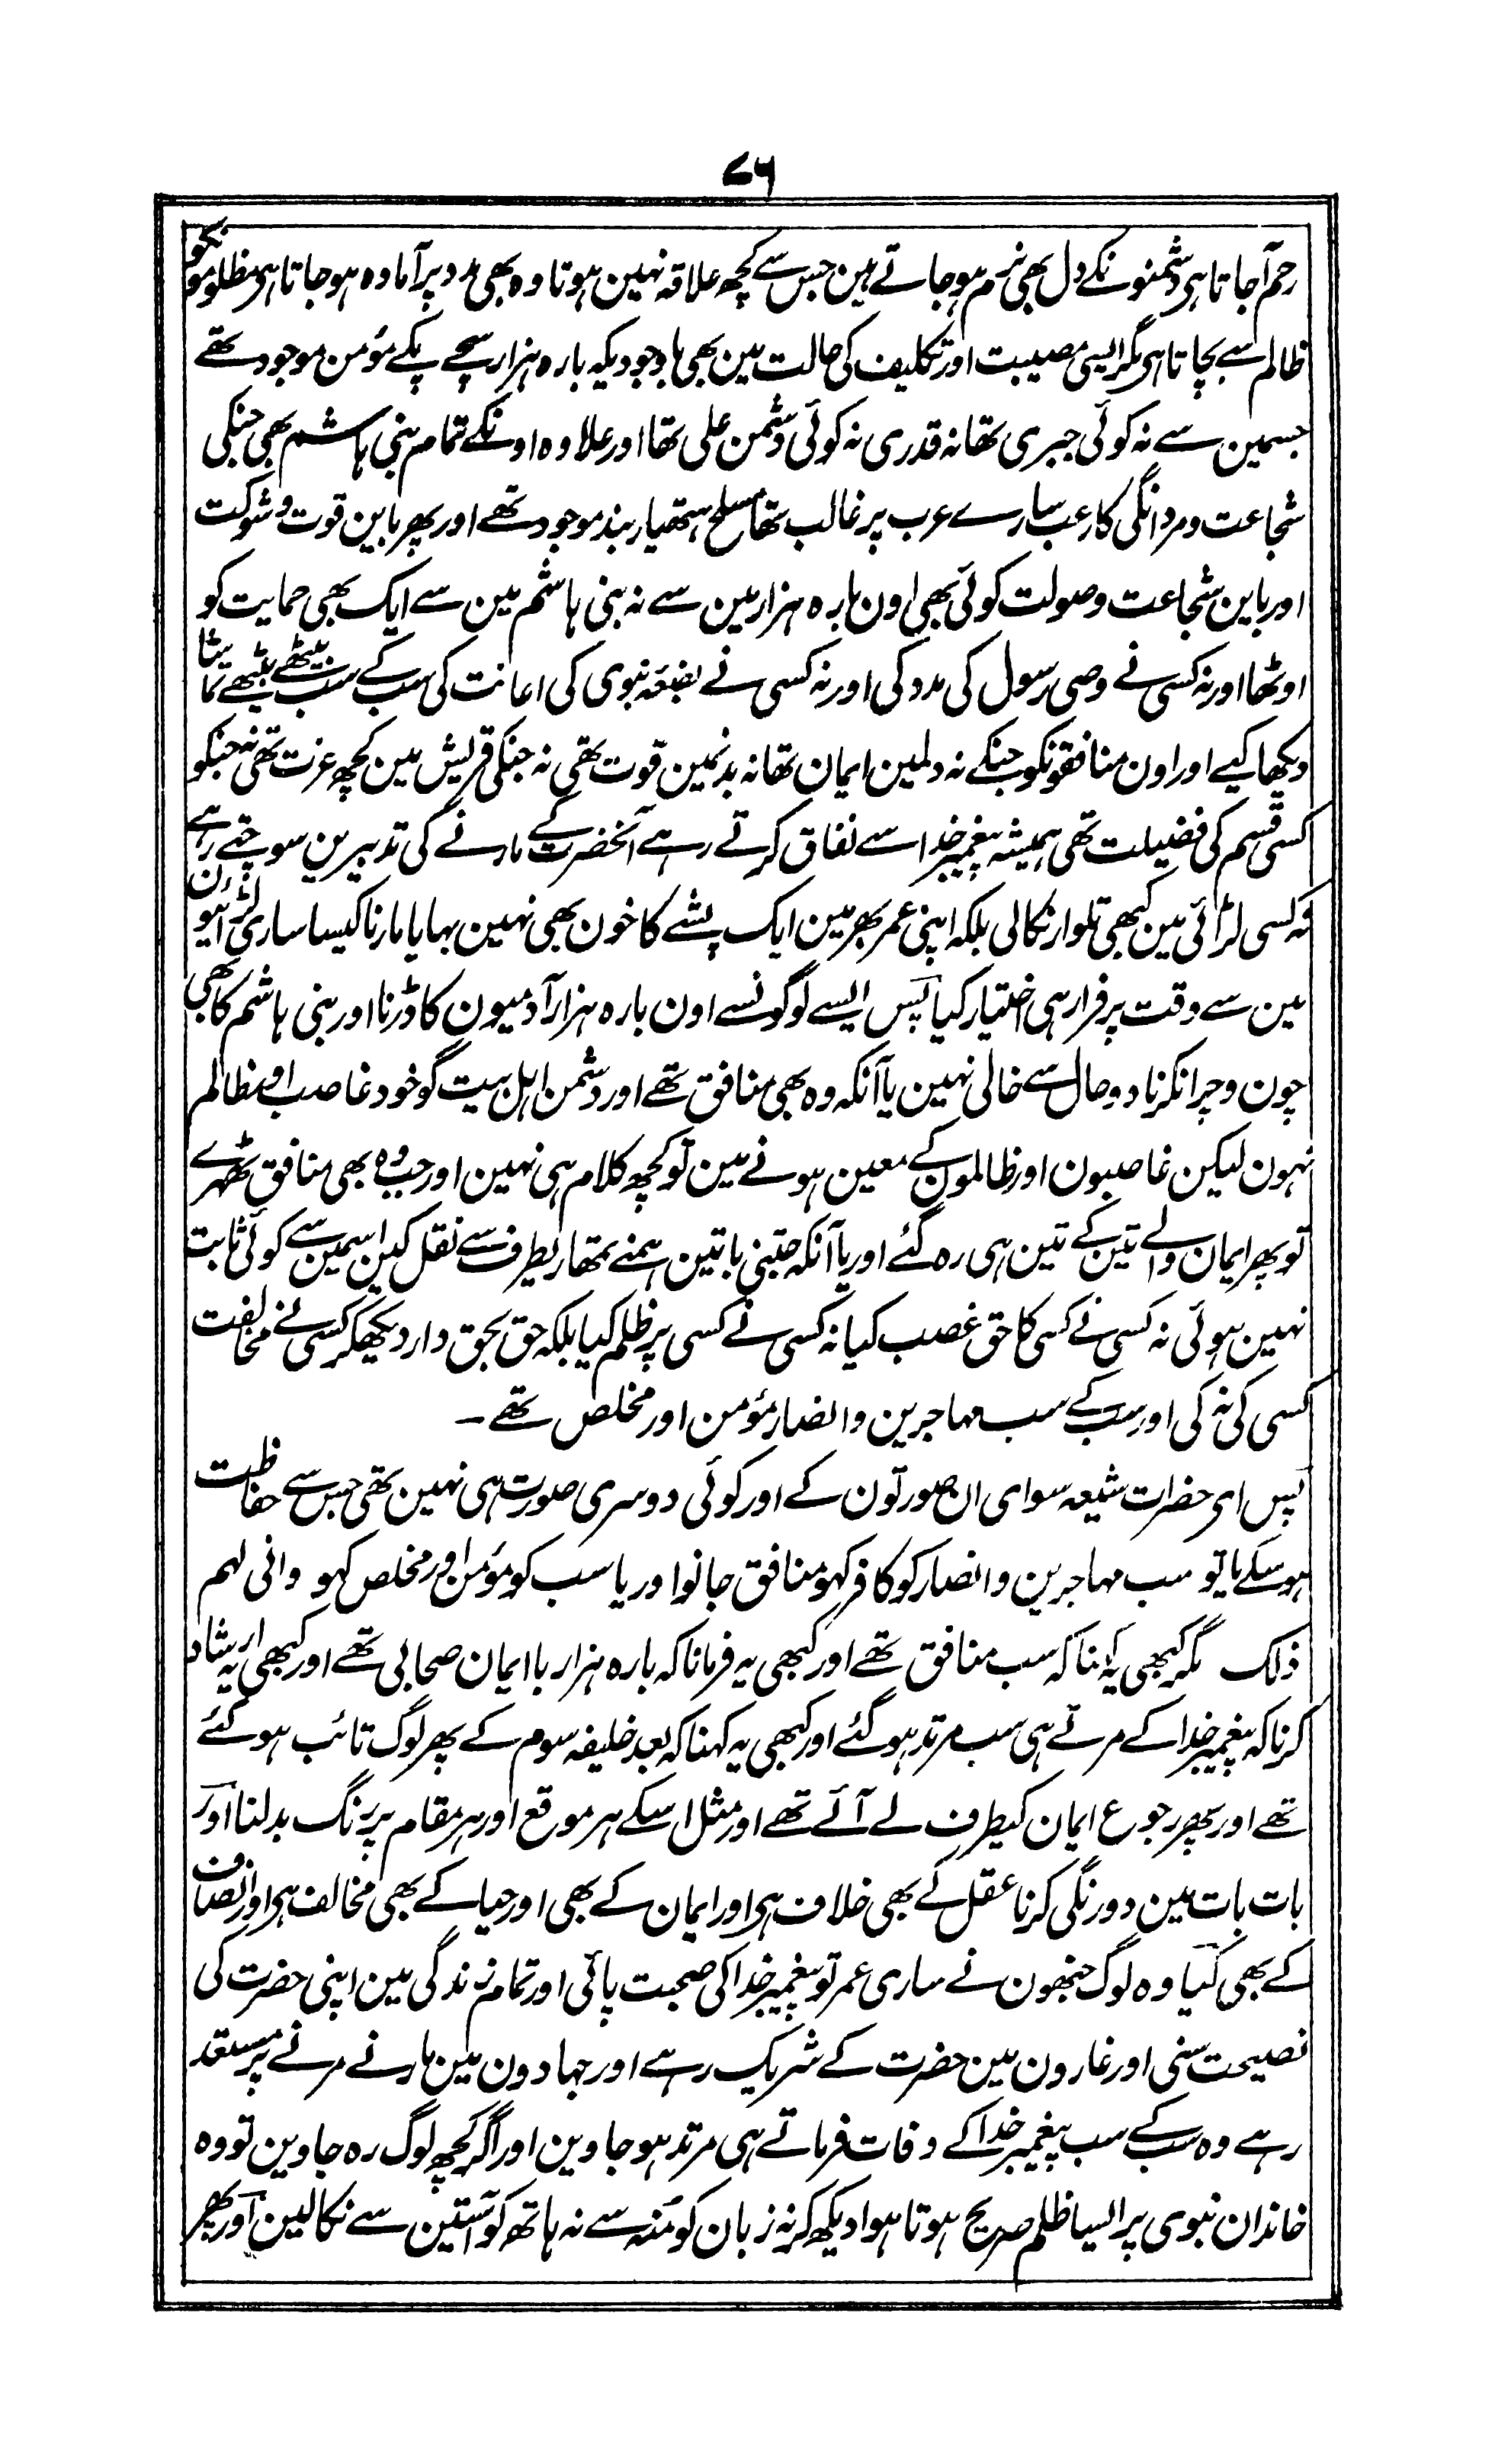 ۷۶
رحم آجاتا ہی دشمنونکے دل بھی نرم ہو جاتے ہین جس سے کچھ علاقہ نہین ہوتا وہ بھی مدد پر آمادہ ہو جاتا ہی مظلومونکو
ظالم سے بچاتا ہی مگر ایسی مصیبت اور تکلیف کی حالت مین بھی باوجودیکہ بارہ ہزار سچے پکے مؤمن موجود تھے
جسمین سے نہ کوئی جبری تھا نہ قدری نہ کوئی دشمن علی تھا اور علاوہ اونکے تمام بنی ہاشم بھی جنکی
شجاعت و مردانگی کا رعب سارے عرب پر غالب تھا مسلح ہتھیار بند موجود تھے اور پھر باین قوت و شوکت
اور باین شجاعت و صولت کوئی بھی اون بارہ ہزار مین سے نہ بنی ہاشم مین سے ایک بھی حمایت کو
اوٹھا اور نہ کسی نے وصی رسول کی مدد کی اور نہ کسی نے بضعۂ نبوی کی اعانت کی سب کے سب بیٹھے بیٹھے تماشا
دیکھا کیے اور اون منافقونکو جنکے نہ دلمین ایمان تھا نہ بدنمین قوت تھی نہ جنکی قریش مین کچھ عزت تھی نہ جنکو
کسی قسم کی فضیلت تھی ہمیشہ پیغمبر خدا سے نفاق کرتے رہے آنحضرت کے مارنے کی تدبیرین سوچتے رہے
نہ کسی لڑائی مین کبھی تلوار نکالی بلکہ اپنی عمر بھر مین ایک پشے کا خون بھی نہین بہایا مارنا کیسا ساری لڑائیون
مین سے وقت پر فرار ہی اختیار کیا پس ایسے لوگونسے اون بارہ ہزار آدمیون کا ڈرنا اور بنی ہاشم کا بھی
چون و چرا نکرنا دو حال سے خالی نہین یا آنکہ وہ بھی منافق تھے اور دشمن اہل بیت گو خود غاصب اور ظالم
نہون لیکن غاصبون اور ظالمون کے معین ہونے مین تو کچھ کلام ہی نہین اور جب وہ بھی منافق ٹھہرے
تو پھر ایمان والے تین کے تین ہی رہ گئے اور یا آنکہ جتنی باتین ہمنے تمھاریطرف سے نقل کین اسمین سے کوئی ثابت
نہین ہوئی نہ کسی نے کسی کا حق غصب کیا نہ کسی نے کسی پر ظلم کیا بلکہ حق بحق دار دیکھکر کسی نے مخالفت
کسی کی نہ کی اور سب کے سب مہاجرین و انصار مؤمن اور مخلص تھے ۔
پس ای حضرات شیعہ سوای ان صورتون کے اور کوئی دوسری صورت ہی نہین تھی جس سے حفاظت
ہو سکے یا تو سب مہاجرین و انصار کو کافر کہو منافق جانو اور یا سب کو مؤمن اور مخلص کہو وانی لہم
ذلک مگر کبھی یہ کہنا کہ سب منافق تھے اور کبھی یہ فرمانا کہ بارہ ہزار باایمان صحابی تھے اور کبھی یہ ارشاد
کرنا کہ پیغمبر خدا کے مرتے ہی سب مرتد ہو گئے اور کبھی یہ کہنا کہ بعد خلیفہ سوم کے پھر لوگ تائب ہو گئے
تھے اور پھر رجوع ایمان کیطرف لے آئے تھے اور مثل اسکے ہر موقع اور ہر مقام پر رنگ بدلنا اور
بات بات مین دورنگی کرنا عقل کے بھی خلاف ہی اور ایمان کے بھی اور حیا کے بھی مخالف ہی اور انصاف
کے بھی کیا وہ لوگ جنھون نے ساری عمر تو پیغمبر خدا کی صحبت پائی اور تمام زندگی مین اپنی حضرت کی
نصیحت سنی اور غارون مین حضرت کے شریک رہے اور جہادون مین مارنے مرنے پر مستعد
رہے وہ سب کے سب پیغمبر خدا کے وفات فرماتے ہی مرتد ہو جاوین اور اگر کچھ لوگ رہ جاوین تو وہ
خاندان نبوی پر ایسا ظلم صریح ہوتا ہوا دیکھ کر نہ زبان کو منہ سے نہ ہاتھ کو آستین سے نکالین اور پھر